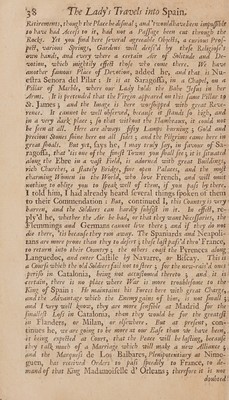 38 The Lady's Travels into Spain.
Retirements, though the Place be dismal; and 'twould have been impossible
to have had Access to it, had not a Passage been cut through the
Rocks. Yet you find here several agreeable Grotts, a curious Pros-
pect, various Springs, Gardens well dress'd by these Religious's
own hands, and every where a certain Air of Solitude and De-
votion, which mightily affect those who come there. We have
another famous Place of Devotion, added he, and that is Nu-
estra Senora del Pilar: It is at Saragossa, in a Chapel, on a
Pillar of Marble, where our Lady holds the Babe Jesus in her
Arms. It is pretended that the Virgin appeared on this same Pillar to
St. James; and the Image is here worshipped with great Reve-
rence. It cannot be well observed, because it stands so high, and
in a very dark place; so that without the Flambeaux, it could not
be seen at all. Here are always fifty Lamps burning; Gold and
precious Stones shine here on all sides; and the Pilgrims come here in
great shoals. But yet, says he, I may truly say, in favour of Sa-
ragossa, that 'tis one of the finest Towns you shall see; it is situated
along the Ebre in a vast Field, is adorned with great Buildings,
rich Churches, a stately Bridge, fine open Palaces, and the most
charming Women in the World, who love French, and will omit
nothing to oblige you to speak well of them, if you pass by there.
I told him, I had already heard several things spoken of them
to their Commendation: But, continued I, this Country is very
barren, and the Soldiers can hardly subsist in it. In effect, re-
ply'd he, whether the Air be bad, or that they want Necessaries, the
Flemmings and Germans cannot live there; and if they do not
die there, 'tis because they run away. The Spaniards and Neapoli-
tans are more prone than they to desert; these last pass thro' France,
to return into their Country; the others coast the Pyrenees along
Languedoc, and enter Castile by Navarre, or Biscay. This is
a Course which the old Soldiers fail not to steer; for the new-rais'd ones
perish in Catalonia, being not accustomed thereto; and it is
certain, there is no place where War is more troublesome to the
King of Spain: He maintains his Forces here with great Charge,
and the Advantage which the Enemy gains of him, is not small;
and I very well know, they are more sensible at Madrid for the
smallest Loss in Catalonia, than they would be for the greatest
in Flanders, or Milan, or elsewhere. But at present, con-
tinues he, we are going to be more at our Ease than we have been,
it being expected at Court, that the Peace will be lasting, because
they talk much of a Marriage which will make a new Alliance;
and the Marquess de Los Balbares, Plenipotentiary at Nime-
guen, has received Orders to pass speedily to France, to de-
mand of that King Madamoiselle d' Orleans; therefore it is not
doubted